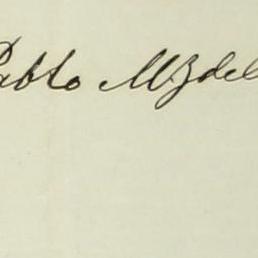 Pablo Mz del